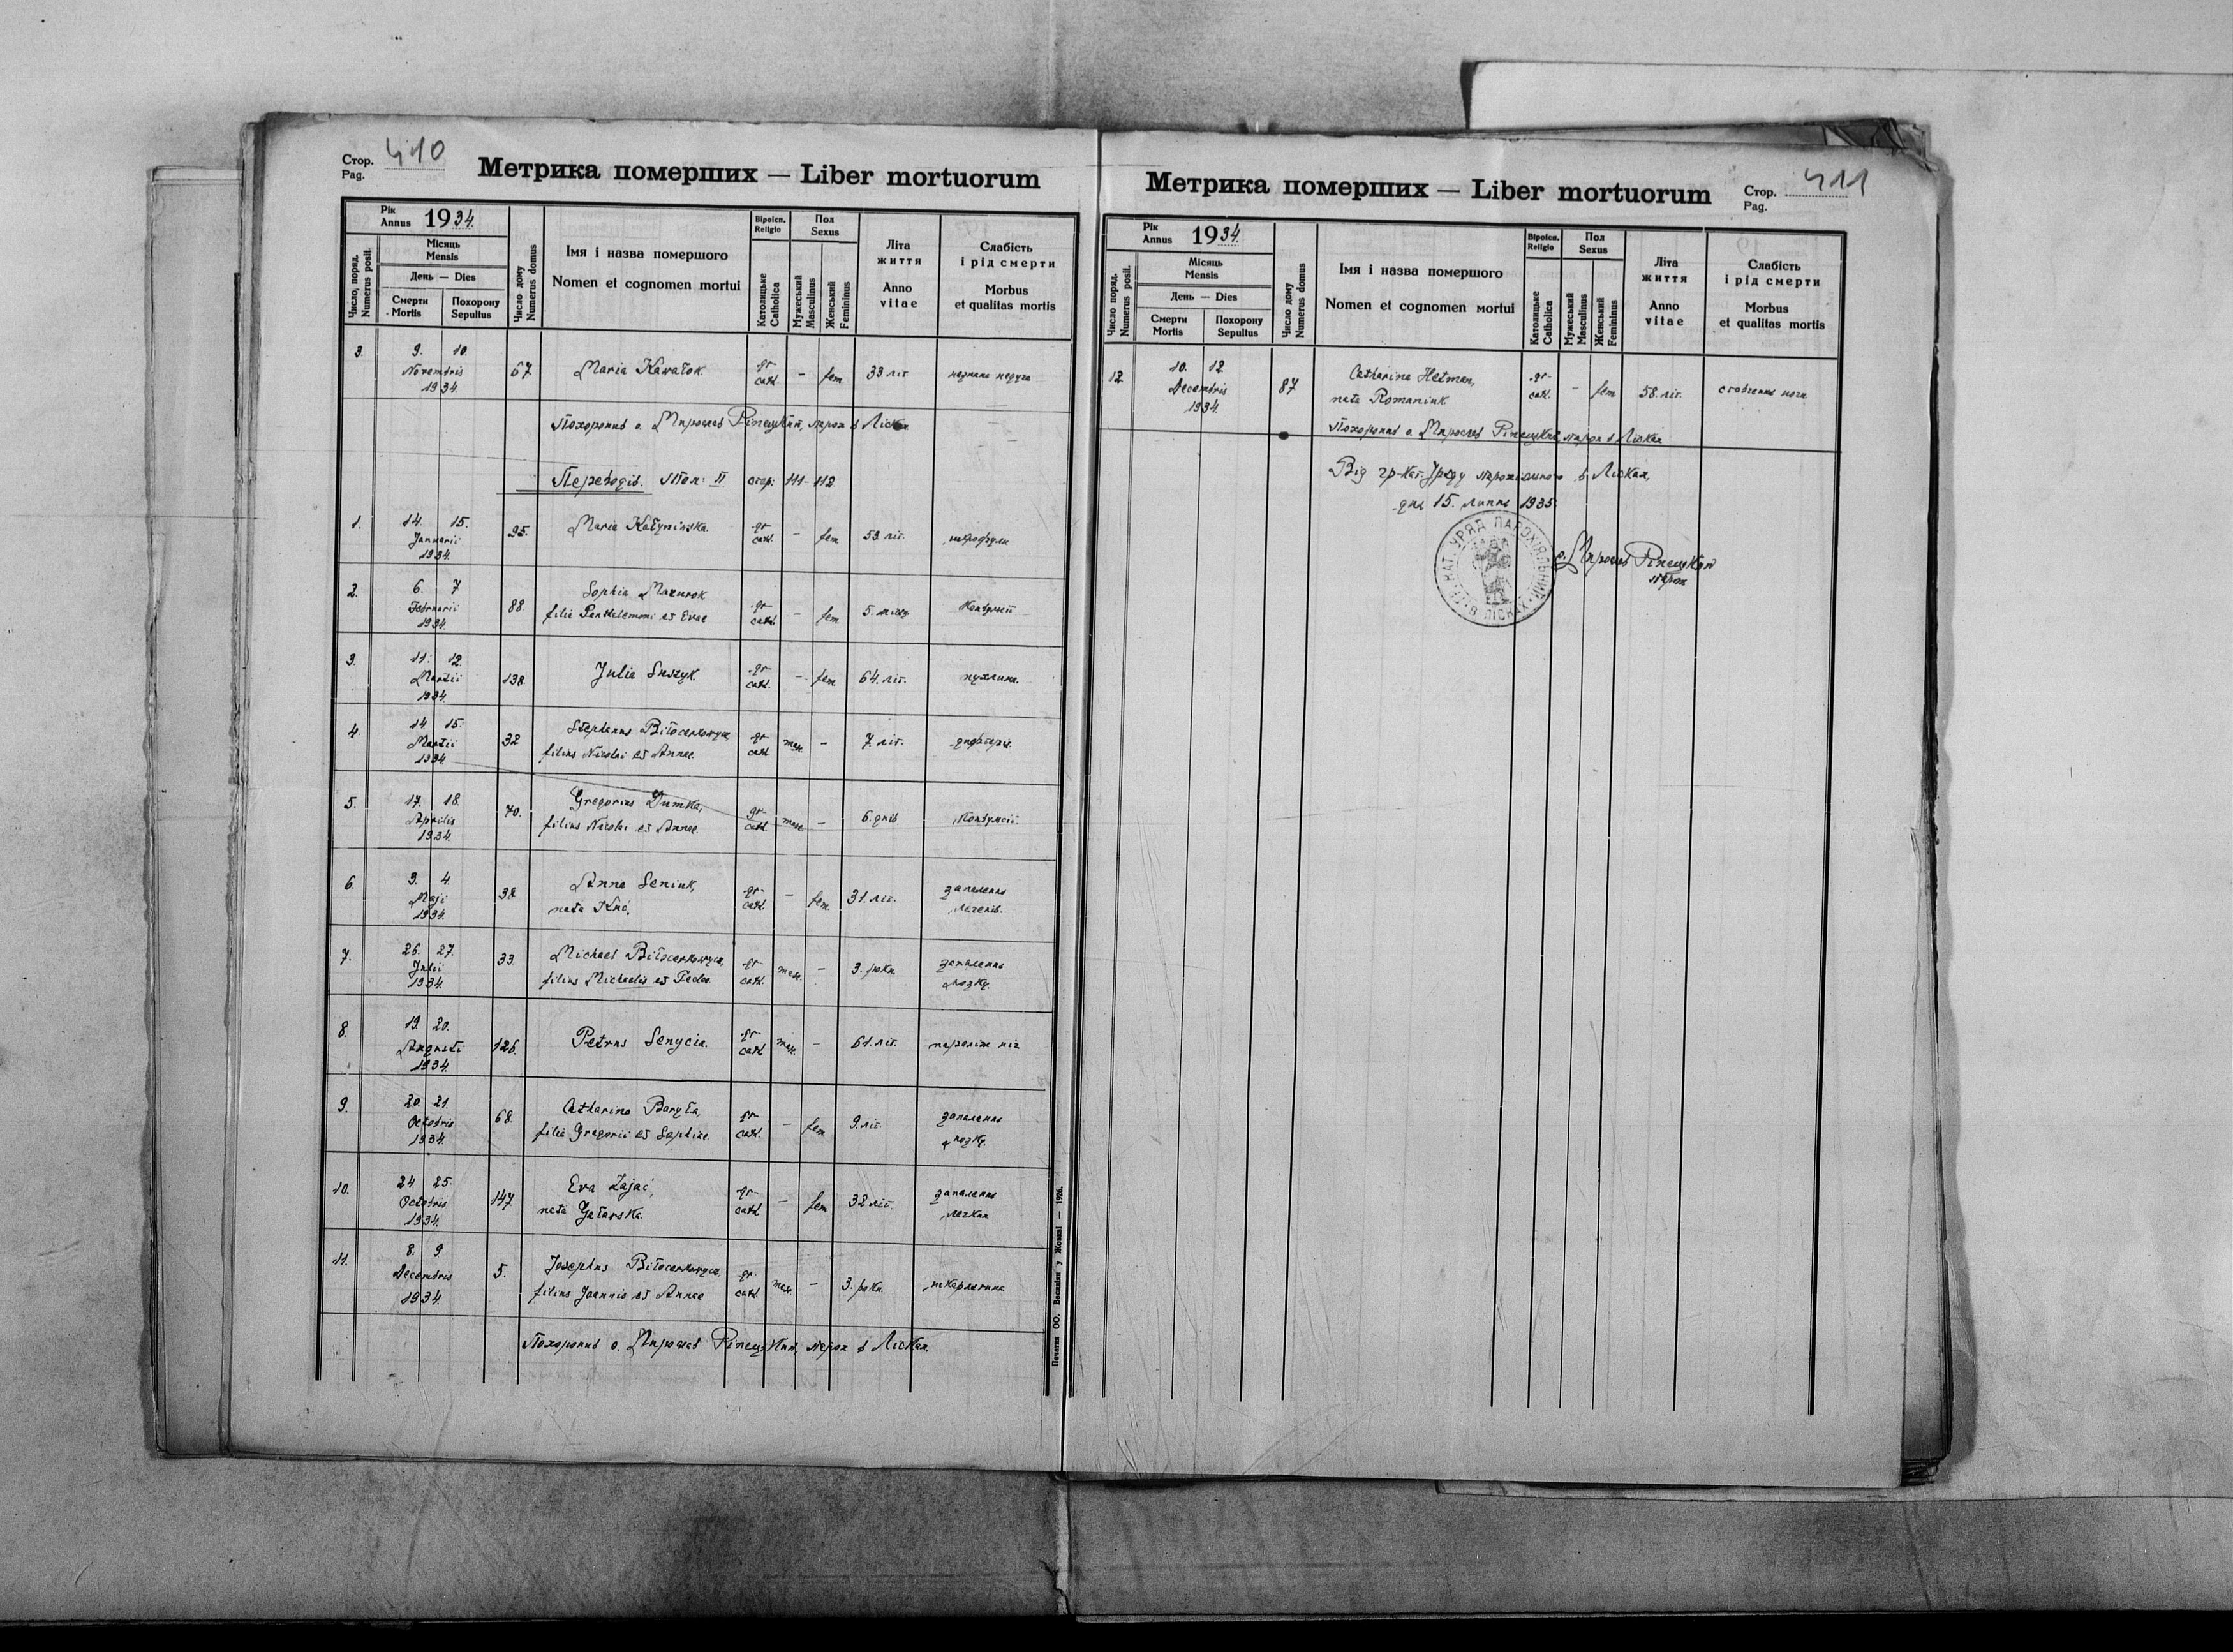 Стор. 410
Pag.
Метрика померших — Liber mortuorum
Рік
Annus 1934.
Число, поряд.
Numerus posit.
Місяць
Mensis
День — Dies
Смерти
Mortis
Похорону
Sepultus
Число дому
Numerus domus
Імя і назва помершого
Nomen et cognomen mortui
Віроісп.
Religio
Католицьке
Catholica
Пол
Sexus
Мужеський
Masculinus
Женський
Femininus
Літа
життя
Anno
vitae
Слабість
і рід смерти
Morbus
et qualitas mortis
3. 9. 10. Novembris 1934. 67 Maria Kawałok gr-cath. – fem 33 літ
Похоронив о. Мирослав Ріпецкий, парох в Лісках
Переводів. Том: II стор: 111-112
1. 14. 15. Januarii 1934. 95. Maria Kałyniwska gr-cath. – fem 53 літ.
2. 6. 7 Februarii 1934. 88. Sophia Mazurok
filia Panthelemoni et Evae gr-cath. – fem 5. місяц. Конвульсії
3. 11. 12. Martii 1934. 138. Julia Suszyk gr-cath. – fem. 64. літ. пухлина.
4. 14. 15. Martii 1934. 32 Stephanus Biłocerkowycz
filius Nicolai et Annae gr-cath. masc. – 7. літ. дифтерія.
5. 17. 18. Aprilis 1934. 70. Gregorius Dumka,
filius Nicolai et Annae. gr-cath. masc. – 6. днів. Конвульсії.
6. 3. 4. Maji 1934. 38 Anna Seniuk,
nata Kuć, gr-cath. – fem. 31. літ. запаленнє легенів.
7. 26. 27. Julii 1934. 33. Michael Biłocerkowycz,
filius Michaelis et Teclae gr-cath. masc. – 3. роки. запаленнє мозку.
8. 19. 20. Augusti 1934. 126. Petrus Senycia. gr-cath. masc. – 61. літ. параліж ніг
9. 20. 21. Octobris 1934. 68. Catharina Baryła,
filia Gregorii et Sophiae. gr-cath. – fem 9. літ. запаленнє мозку.
10. 24. 25. Octobris 1934. 147. Eva Zajać,
nata Gatarska gr-cath. – fem 32 літ. запаленнє легких
11. 8. 9 Decembris 1934. 5. Josephus Biłocerkowycz,
filius Joannis et Annae gr-cath. masc. – 3. роки. шкарлатина
Похоронив о. Мирослав Ріпецкий, парох в Лісках.
Печатня ОО. Василіян у Жовкві — 1926.
Метрика померших — Liber mortuorum
Стор. 411
Pag.
Рік
Annus 1934.
Число поряд.
Numerus posit.
Місяць
Mensis
День — Dies
Смерти
Mortis
Похорону
Sepultus
Число дому
Numerus domus
Імя і назва помершого
Nomen et cognomen mortui
Віроісп.
Religio
Католицьке
Catholica
Пол
Sexus
Мужеський
Masculinus
Женський
Femininus
Літа
життя
Anno
vitae
Слабість
і рід смерти
Morbus
et qualitas mortis
12 10. 12 Decembris 1934. 87 Catharina Hetman,
nata Romaniuk gr-cath. – fem 58. літ.
Похоронив о. Мирослав Ріпецкий, парох в Лісках
Від гр-кат-Уряду парохіяльного в Лісках,
дня 15. липня 1935.
ГР.-КАТ. УРЯД ПАРОХІЯЛЬНИЙ В ЛІСКАХ
о. Мирослав Ріпецкий
парох